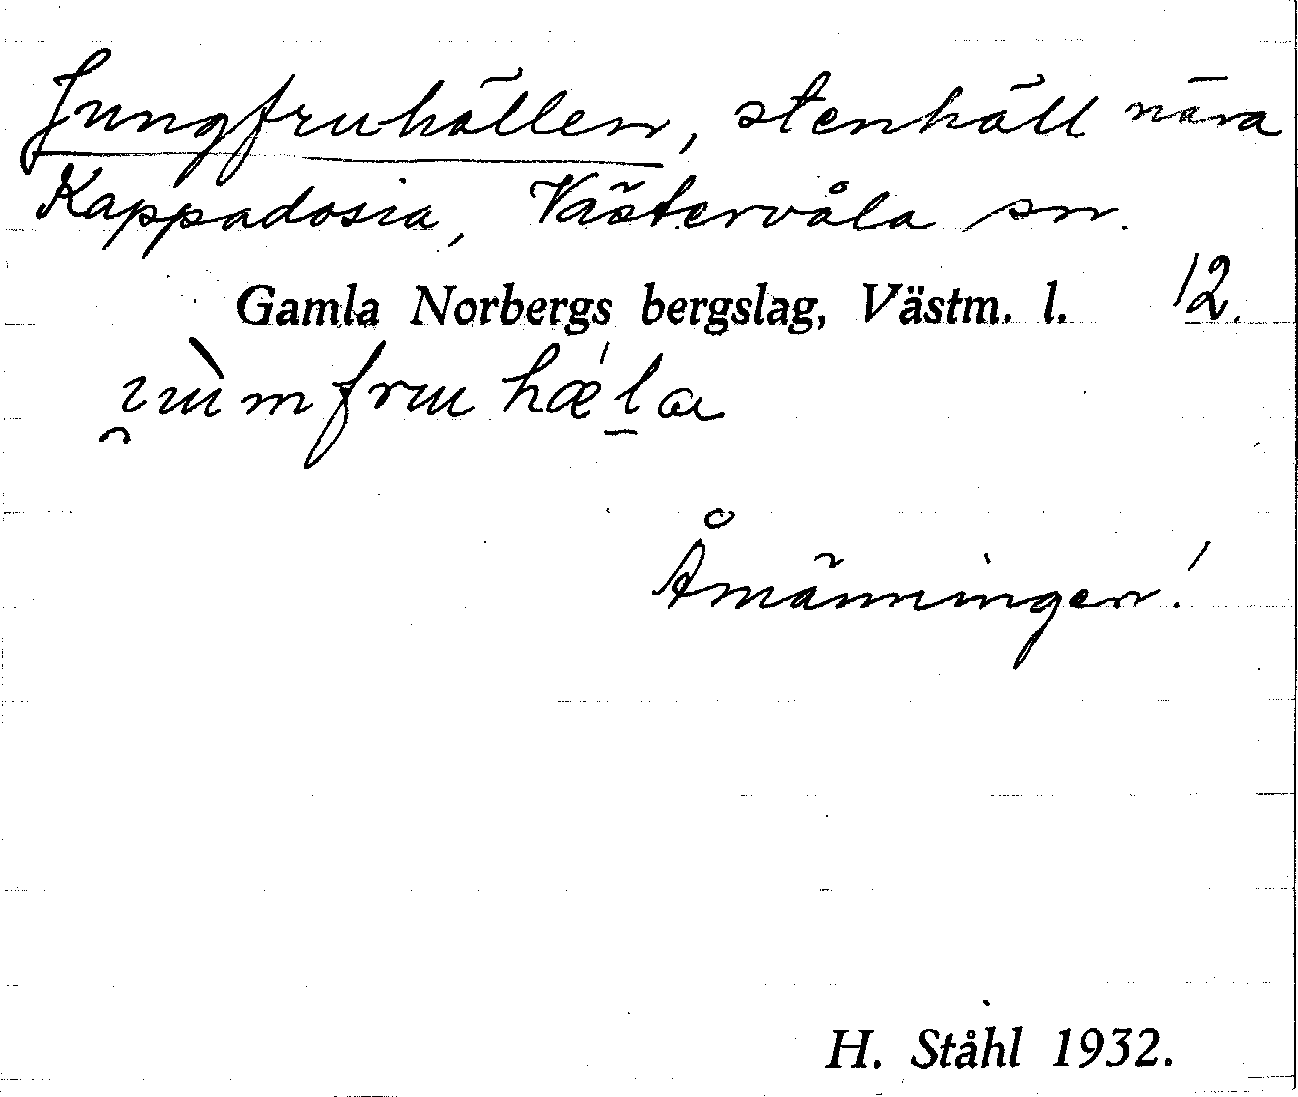 Jungfruhällen, stenhäll nära
Kappadosia, Västervåla sn.
Gamla Norbergs bergslag, Västm. l. 12.
i̯ùmfruhæ´l̠a
Åmänningen!
H. Ståhl 1932.